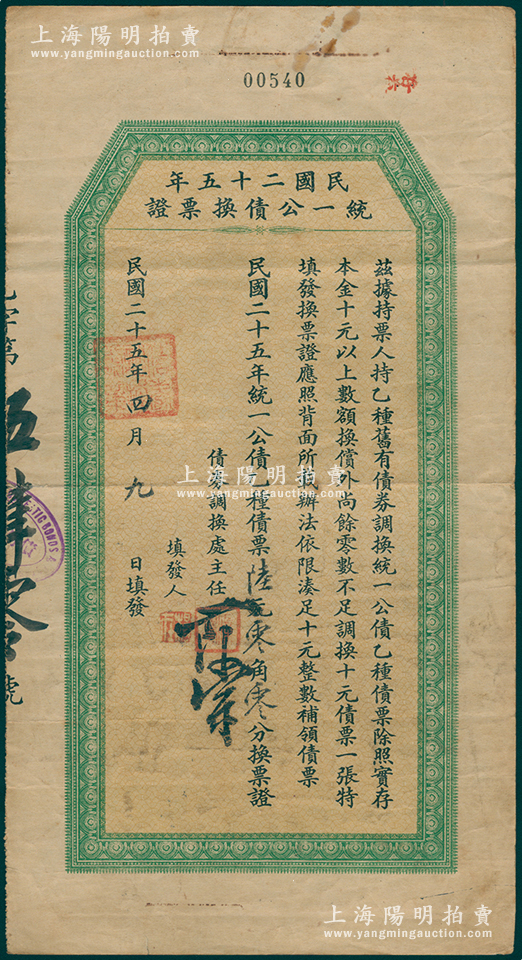 上海陽明拍賣
www.yangmingauction.com
00540
民國二十五年
統一公債換票證
茲據持票人持乙種舊有債券調換統一公債乙種債票除照實存
本金十元以上數額換償外尚餘零數不足調換十元債票一張特
填發換票證應照背面所載辦法依限湊足十元整數補領債票
民國二十五年統一公債乙種債票陸元零角零分換票證
債券調換處主任
填發人
民國二十五年四月九日填發
字第伍肆零號
TIC BONDS
上海陽明拍賣
www.yangmingauction.com
上海陽明拍賣
www.yangmingauction.com